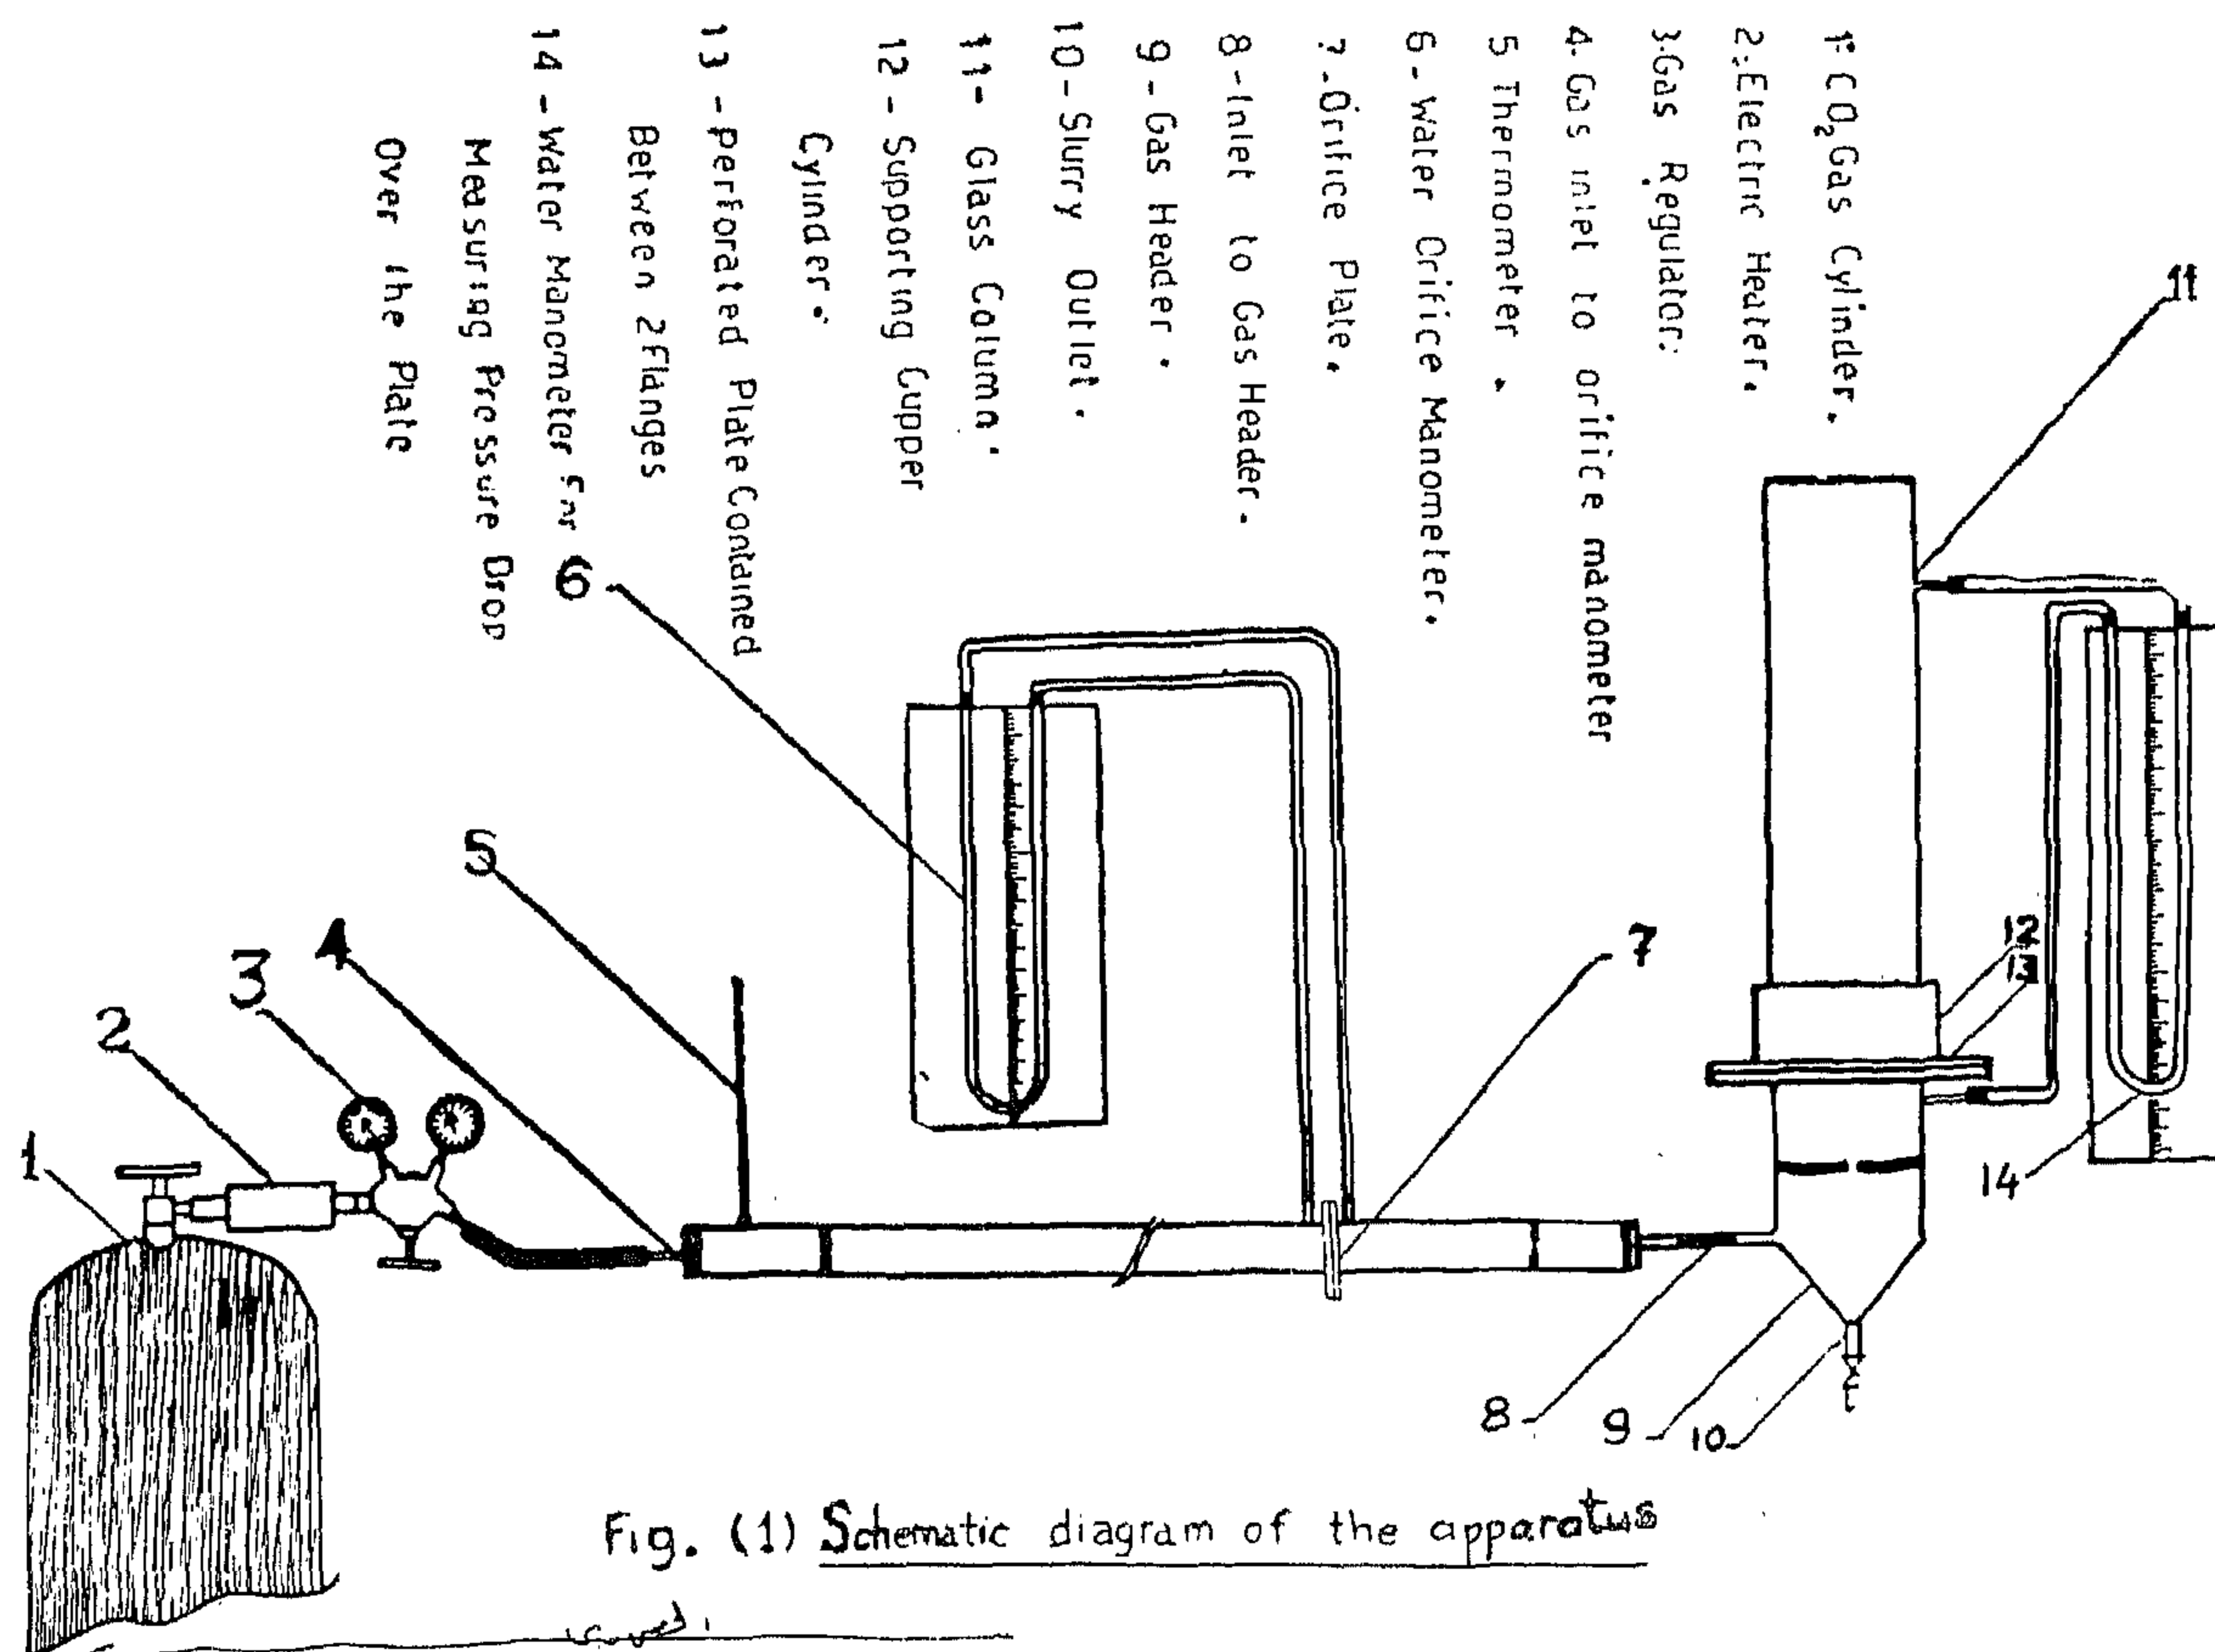 1- CO₂ Gas Cylinder.
2-Electric Heater.
3-Gas Regulator.
4-Gas inlet to orifice manometer
5 Thermometer .
6-Water Orifice Manometer.
7-Orifice Plate.
8-Inlet to Gas Header.
9-Gas Header.
10-Slurry Outlet.
11- Glass Column.
12 - Supporting Cupper
Cylinder.
13 -perforated Plate Contained
Between 2Flanges
14 -Water Manometer For
Measuring Pressure Drop
Over the Plate
11
6
5
12
13
7
4
3
2
14
1
8
9
10
Fig. (1) Schematic diagram of the apparatus